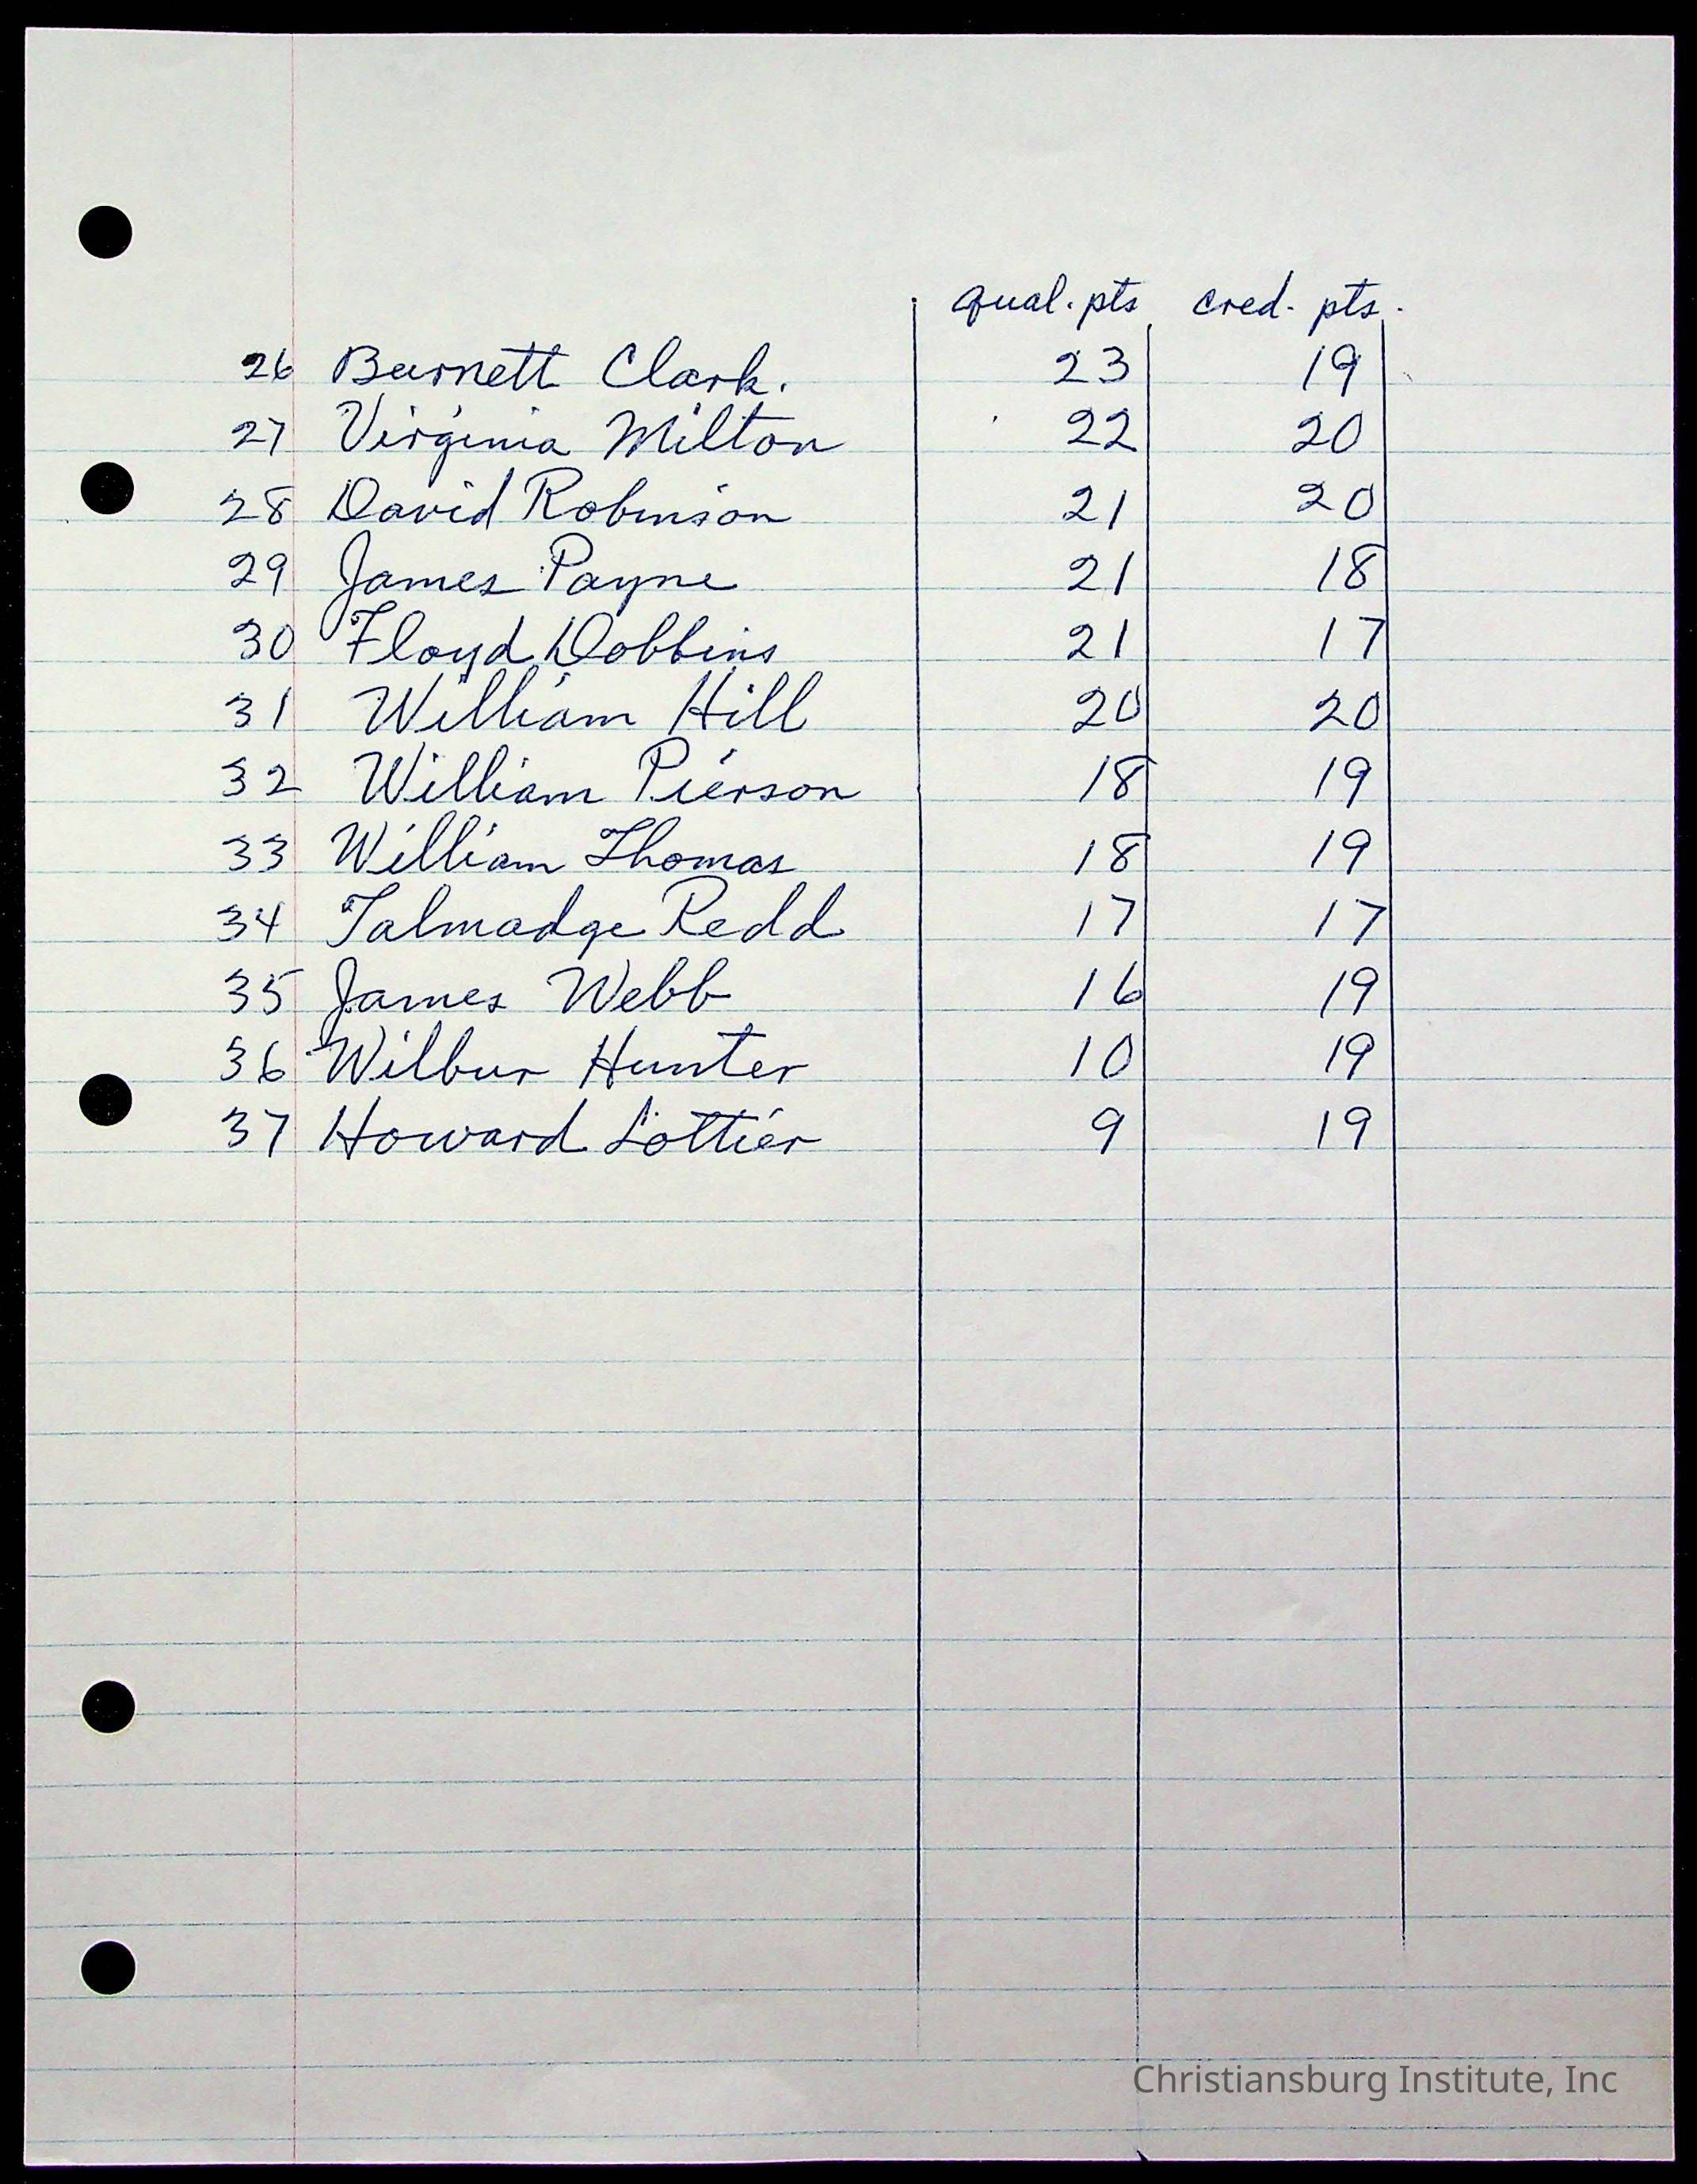 qual. pts cred. pts.
26 Burnett Clark. 23 19
27 Virginia Milton 22 20
28 David Robinson 21 20
29 James Payne 21 18
30 Floyd Dobbins 21 17
31 William Hill 20 20
32 William Pierson 18 19
33 William Thomas 18 19
34 Talmadge Redd 17 17
35 James Webb 16 19
36 Wilbur Hunter 10 19
37 Howard Lottier 9 19
Christiansburg Institute, Inc